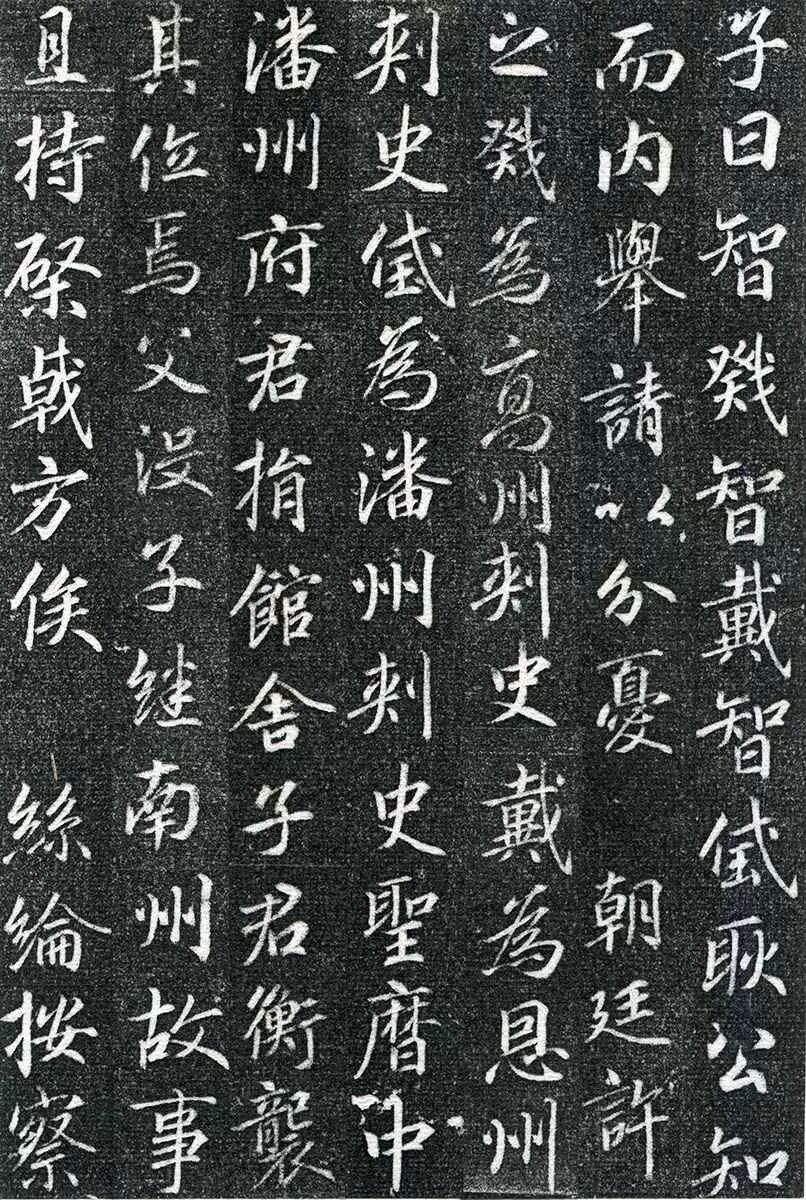 子曰智戣智戴智侙耿公知
而内舉請以分憂朝廷許
之戣為高州刺史戴為恩州
刺史侙為潘州刺史聖曆中
潘州府君捐館舍子君衡襲
其位焉父没子继南州故事
且持棨戟方俟絲綸按察